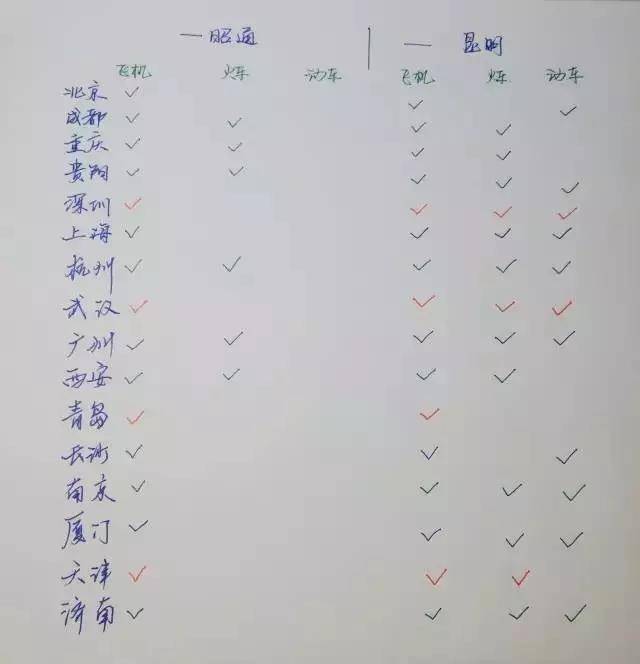 —昭通 | —昆明
飞机 火车 动车 飞机 火车 动车
北京
成都
重庆
贵阳
深圳
上海
杭州
武汉
广州
西安
青岛
长沙
南京
厦门
天津
济南